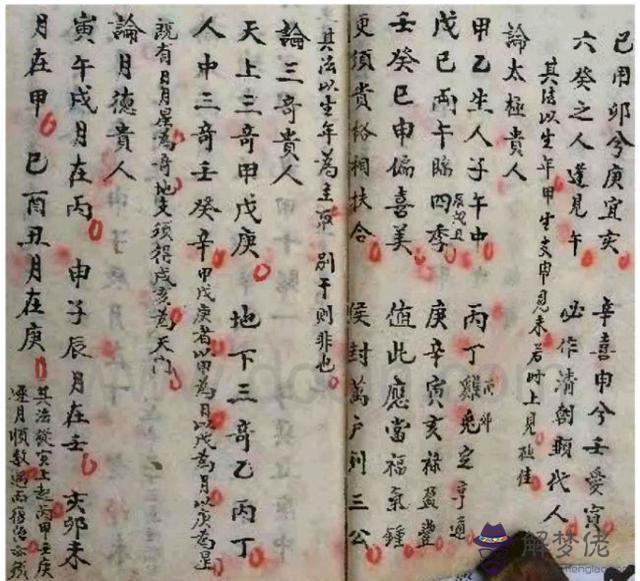 己用卯兮庚宜亥 辛喜申兮壬愛寅
六癸之人逢見午 必作清朝顯代人
其法以生年甲生支中見未若時上見極佳
論太極貴人
甲乙生人子午中 丙丁雞兔定亨通
酉卯
戊己両午臨四季 庚辛寅亥祿盈豊
辰戌丑
壬癸巳申偏喜美 值此應當福氣鍾
更須貴格相扶合 侯封萬户到三公
其法以生年為主取别干則非也
論三奇貴人
天上三奇甲戊庚 地下三奇乙丙丁
人中三奇壬癸辛 甲戊庚者以甲為日以戊為月以庚為星
既有日月星為奇地支須得戌亥為天門
論月德貴人
寅午戌月在丙 申子辰月在壬 亥卯未
月在甲 巳酉丑月在庚 其法從寅上起丙甲壬庚
逐月順數週而復始
解梦佬